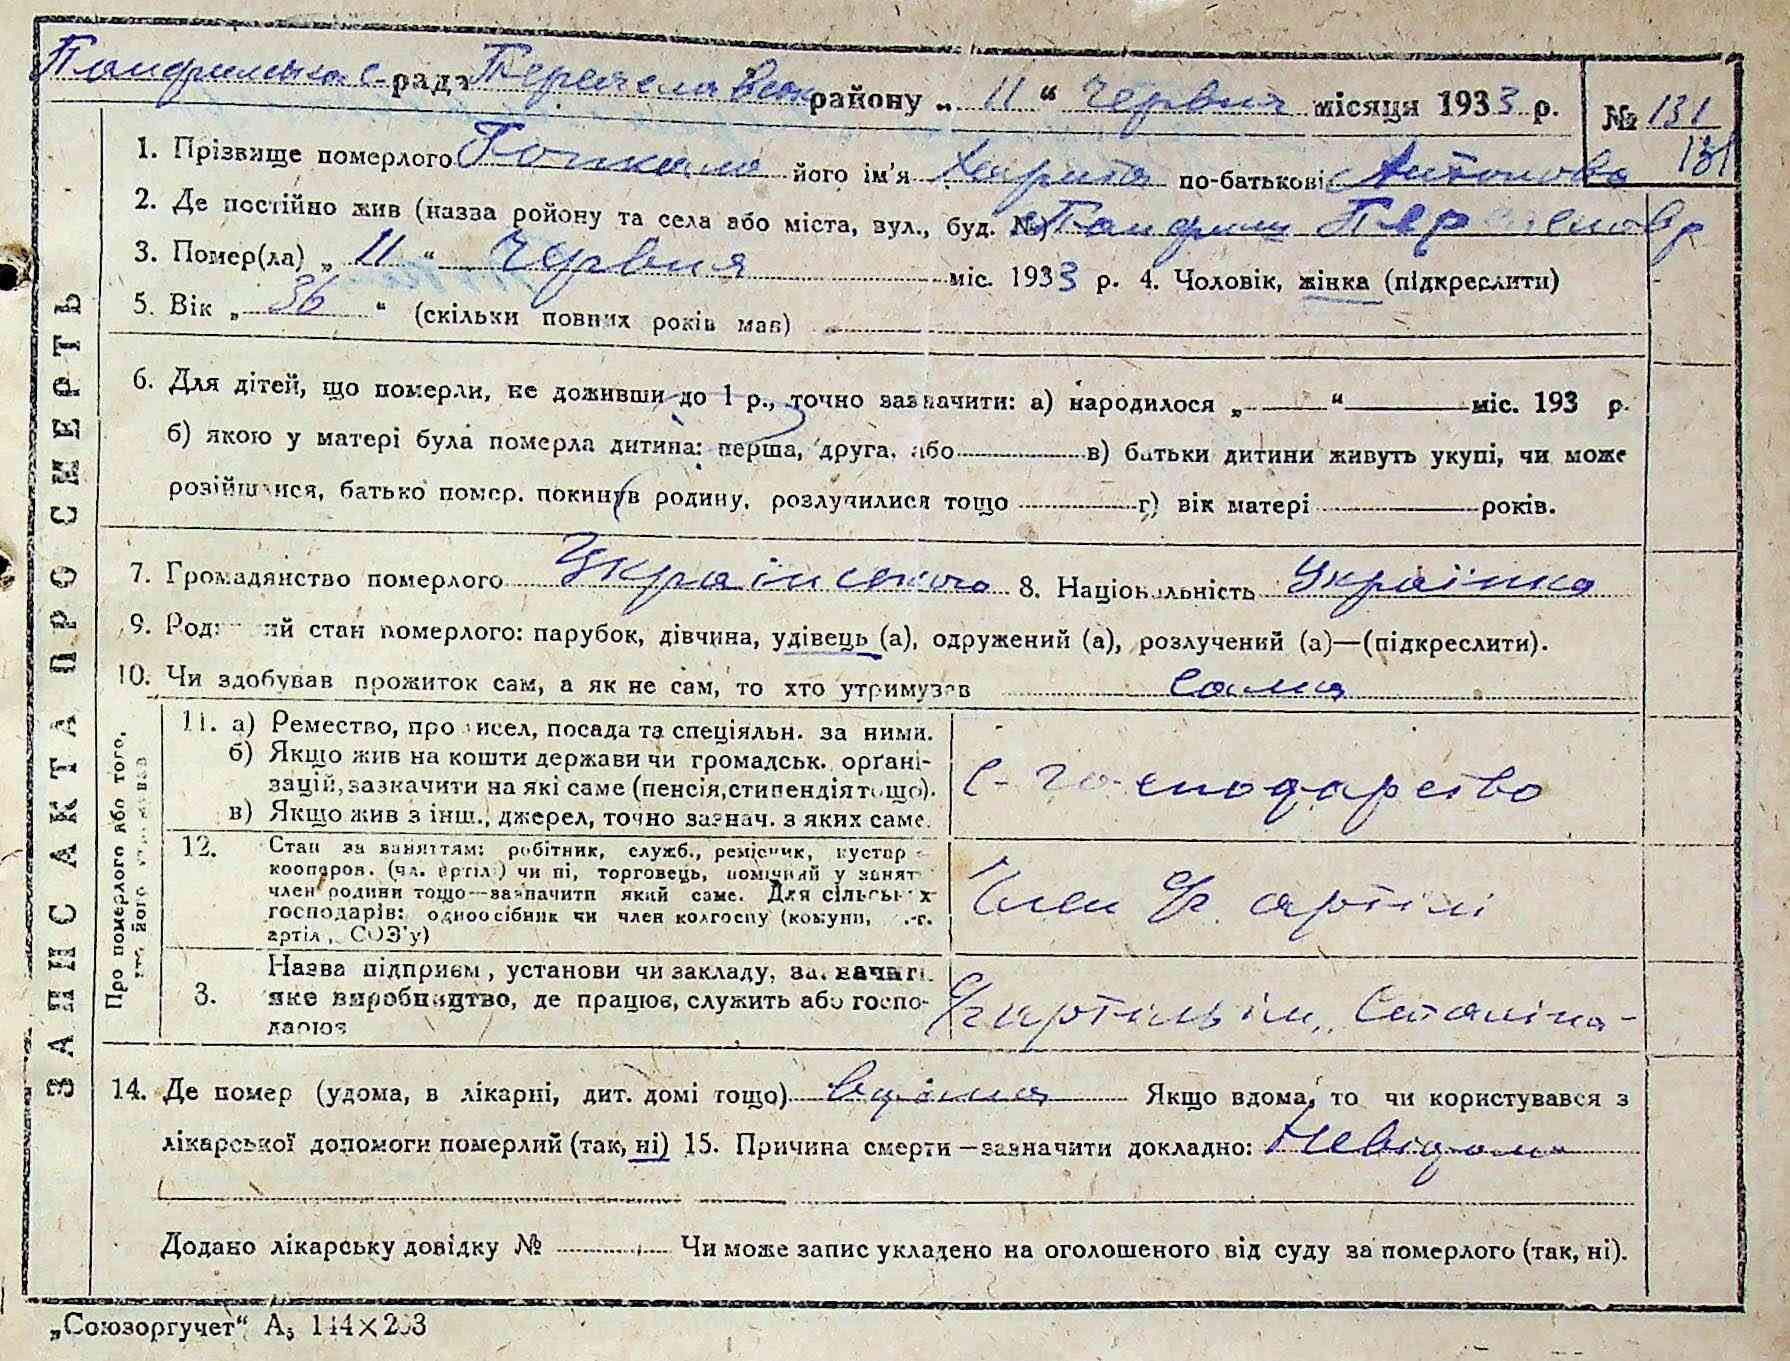 рада Переяславськ району „ 11 “ Червня місяця 1933 р. № 131
131
1. Прізвище померлого його ім'я Харита по-батькові Антонова
2. Де постійно жив (назва ройону та села або міста, вул., буд. №)
3. Помер(ла) „ 11 “ Червня міс. 1933 р. 4. Чоловік, жінка (підкреслити)
5. Вік „ 36 “ (скільки повних років мав)
6. Для дітей, що померли, не доживши до 1 р., точно зазначити: а) народилося „ “ міс. 193 р.
б) якою у матері була померла дитина: перша, друга, або в) батьки дитини живуть укупі, чи може
розійшлися, батько помер. покинув родину, розлучилися тощо г) вік матері років.
7. Громадянство померлого Українського 8. Національність Українка
9. Родинний стан померлого: парубок, дівчина, удівець (а), одружений (а), розлучений (а)—(підкреслити).
10. Чи здобував прожиток сам, а як не сам, то хто утримував сама
11. а) Ремество, промисел, посада та спеціяльн. за ними.
б) Якщо жив на кошти держави чи громадськ. орґані-
зацій, зазначити на які саме (пенсія, стипендія тощо).
в) Якщо жив з інш., джерел, точно зазнач. з яких саме.
С-господарство
12. Стан за заняттям: робітник, служб., ремісник, кустар
коопоров. (чл. артіл.) чи ні, торговець, помічний у занят
член родини тощо—зазначити який саме. Для сільських
господарів: одноосібник чи член колгоспу (комуни, с.-г.
артіл, СОЗ'у)
Член с/г. артілі
Назва підприєм, установи чи закладу, зазначати
3. яке виробництво, де працює, служить або госпо-
дарює
С/г артіль ім„ Сталіна-
14. Де помер (удома, в лікарні, дит. домі тощо) вдома Якщо вдома, то чи користувався з
лікарської допомоги померлий (так, ні) 15. Причина смерти—зазначити докладно: Невідома
Додано лікарську довідку № Чи може запис укладено на оголошеного від суду за померлого (так, ні).
ЗАПИС АКТА ПРО СМЕРТЬ
Про померлого або того,
хто його утримував
„Союзоргучет“ А5 144×203